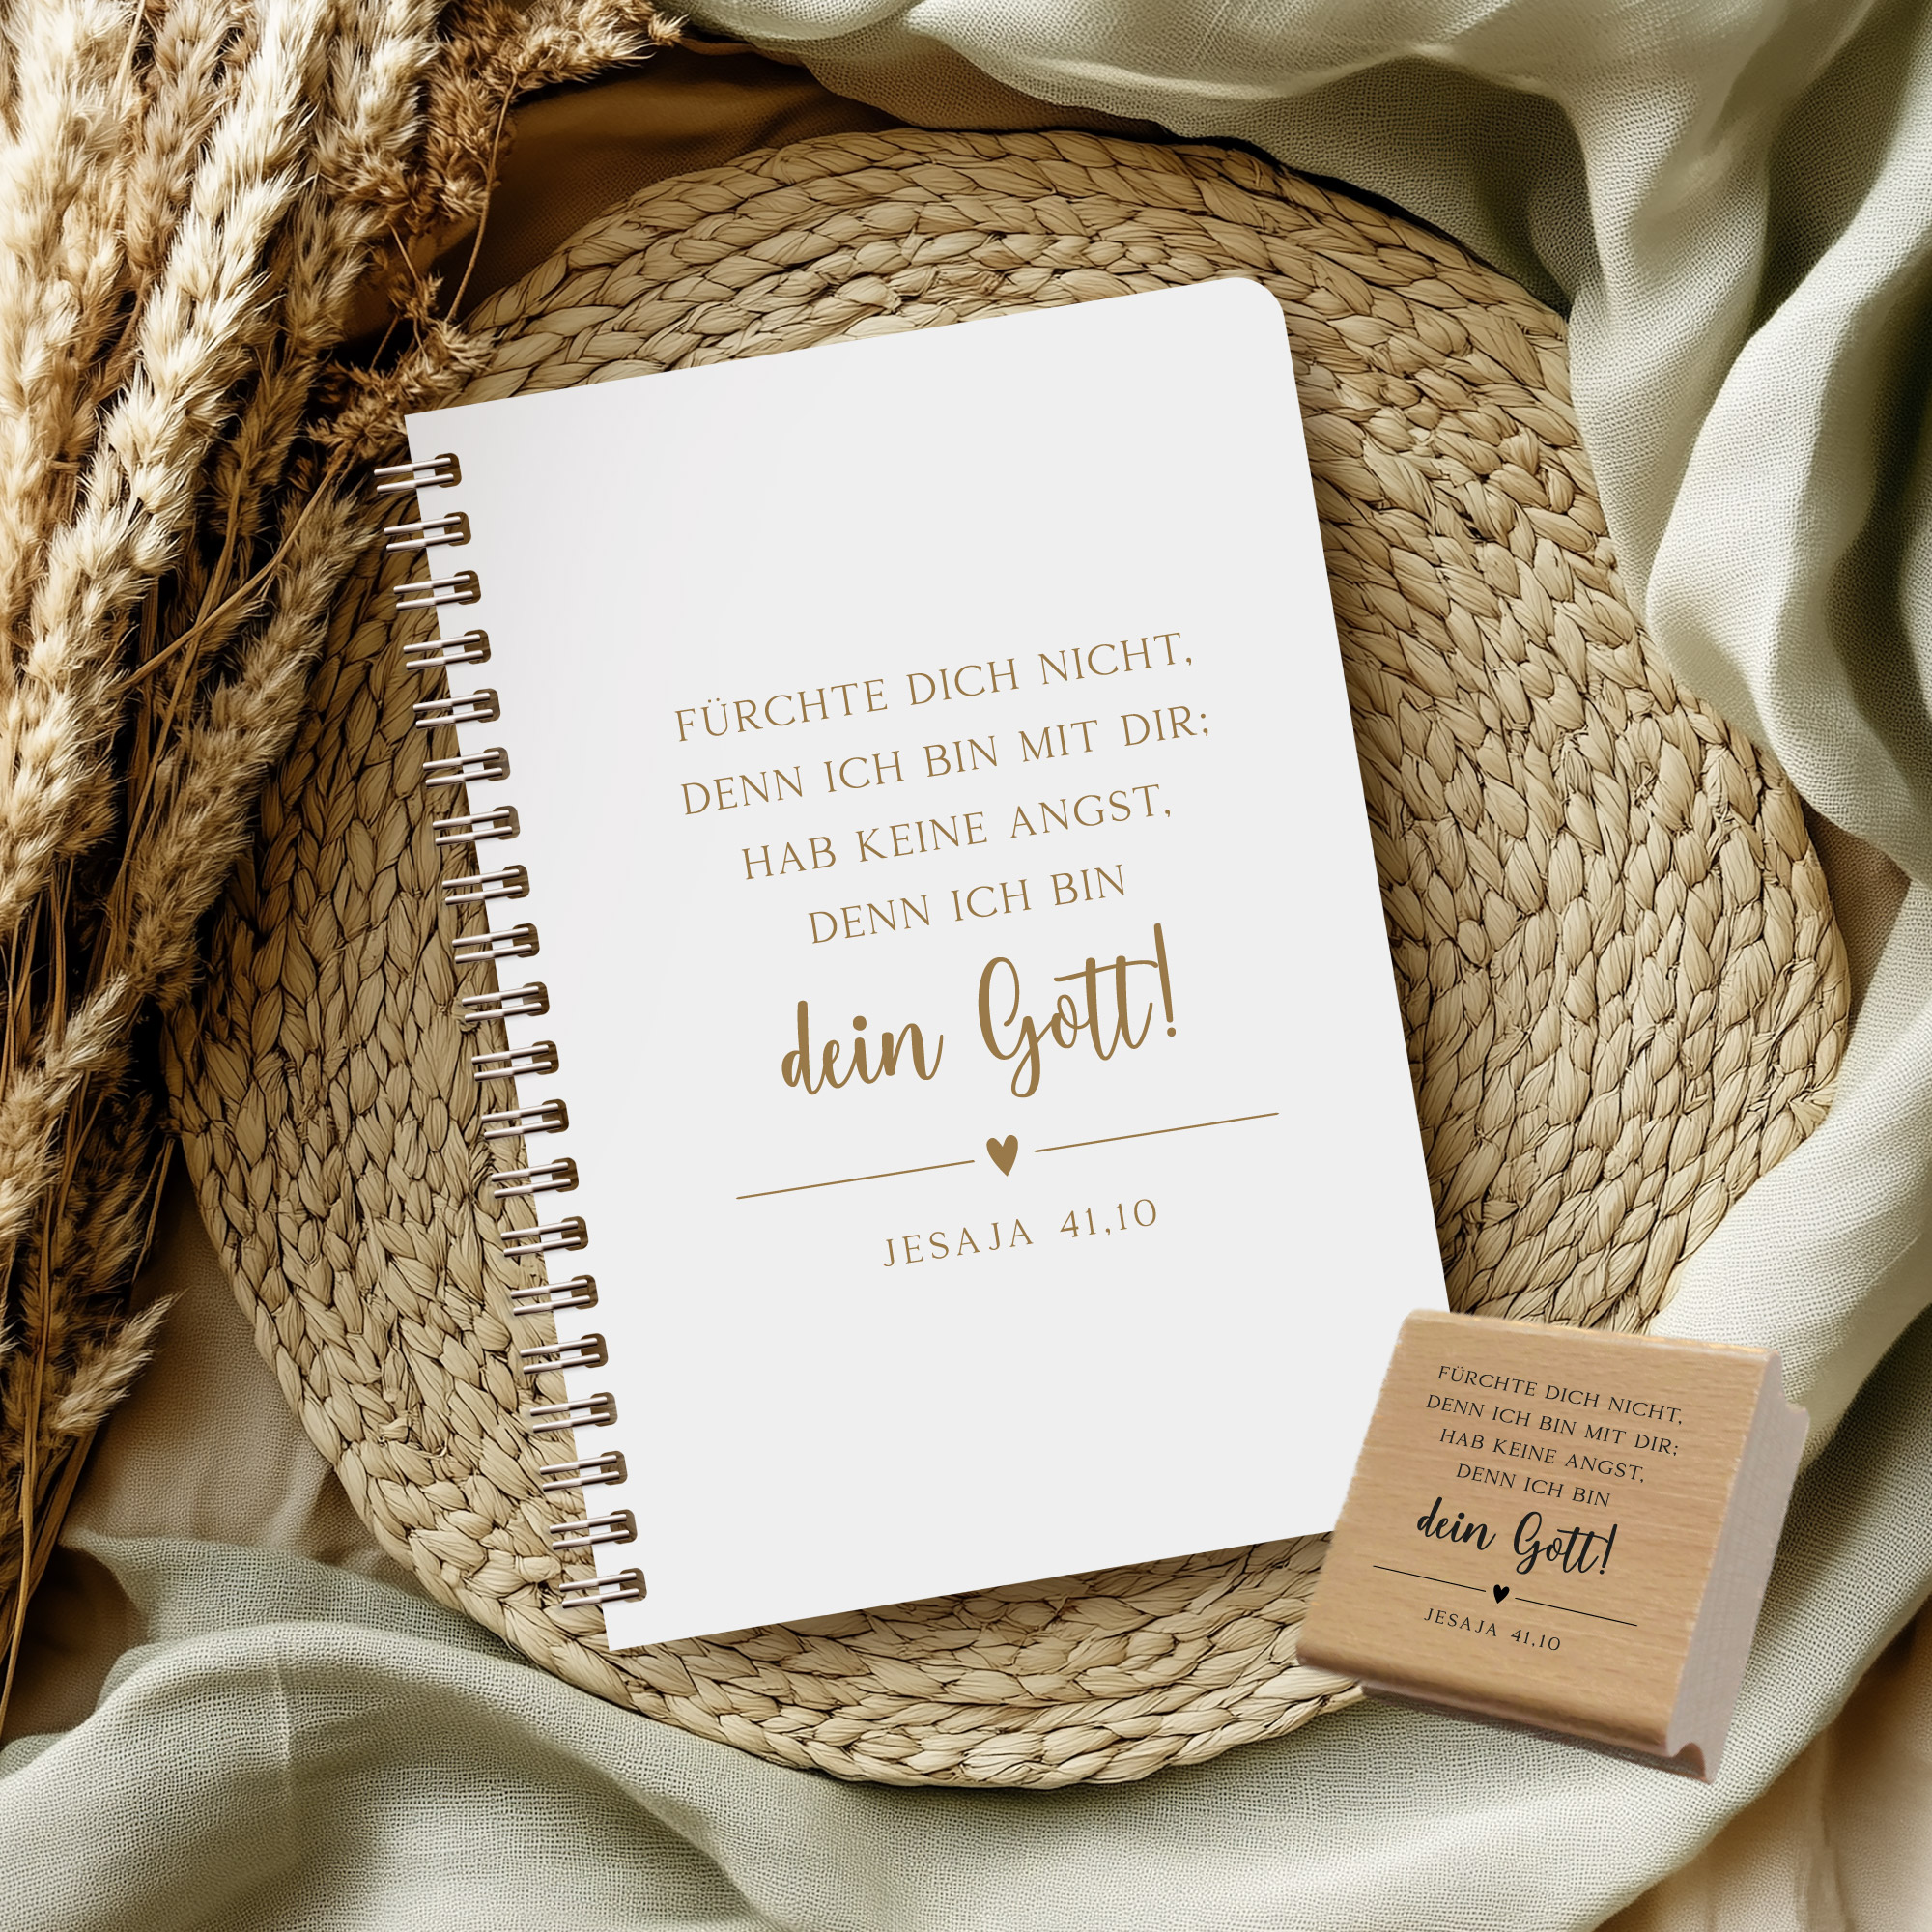 FÜRCHTE DICH NICHT,
DENN ICH BIN MIT DIR;
HAB KEINE ANGST,
DENN ICH BIN
dein Gott!
JESAJA 41,10
FÜRCHTE DICH NICHT,
DENN ICH BIN MIT DIR;
HAB KEINE ANGST,
DENN ICH BIN
dein Gott!
JESAJA 41,10